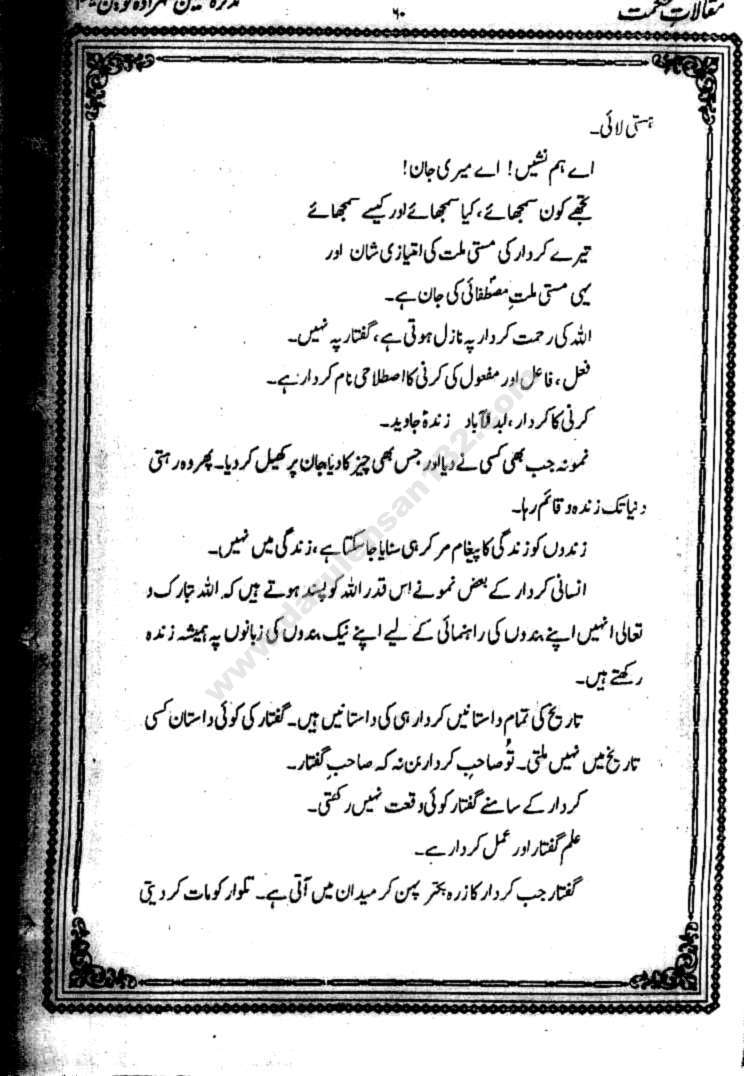 مقالاتِ حکمت
۶۰
ہستی لائی۔
اے ہم نشیں! اے میری جان!
تجھے کون سمجھائے، کیا سمجھائے اور کیسے سمجھائے
تیرے کردار کی مستی ملت کی امتیازی شان اور
یہی مستی ملتِ مصطفائی کی جان ہے۔
اللہ کی رحمت کردار پہ نازل ہوتی ہے، گفتار پہ نہیں۔
فعل، فاعل اور مفعول کی کرنی کا اصطلاحی نام کردار ہے۔
کرنی کا کردار، ابدالآباد زندۂ جاوید۔
نمونہ جب بھی کسی نے دیا اور جس بھی چیز کا دیا جان پر کھیل کر دیا۔ پھر وہ رہتی
دنیا تک زندہ و قائم رہا۔
زندوں کو زندگی کا پیغام مر کر ہی سنایا جا سکتا ہے، زندگی میں نہیں۔
انسانی کردار کے بعض نمونے اس قدر اللہ کو پسند ہوتے ہیں کہ اللہ تبارک و
تعالیٰ انہیں اپنے بندوں کی راہنمائی کے لیے اپنے نیک بندوں کی زبانوں پہ ہمیشہ زندہ
رکھتے ہیں۔
تاریخ کی تمام داستانیں کردار ہی کی داستانیں ہیں۔ گفتار کی کوئی داستان کسی
تاریخ میں نہیں ملتی۔ تُو صاحبِ کردار بن نہ کہ صاحبِ گفتار۔
کردار کے سامنے گفتار کوئی وقعت نہیں رکھتی۔
علم گفتار اور عمل کردار ہے۔
گفتار جب کردار کا زرہ بکتر پہن کر میدان میں آتی ہے۔ تلوار کو مات کر دیتی
www.darulehsan182.com